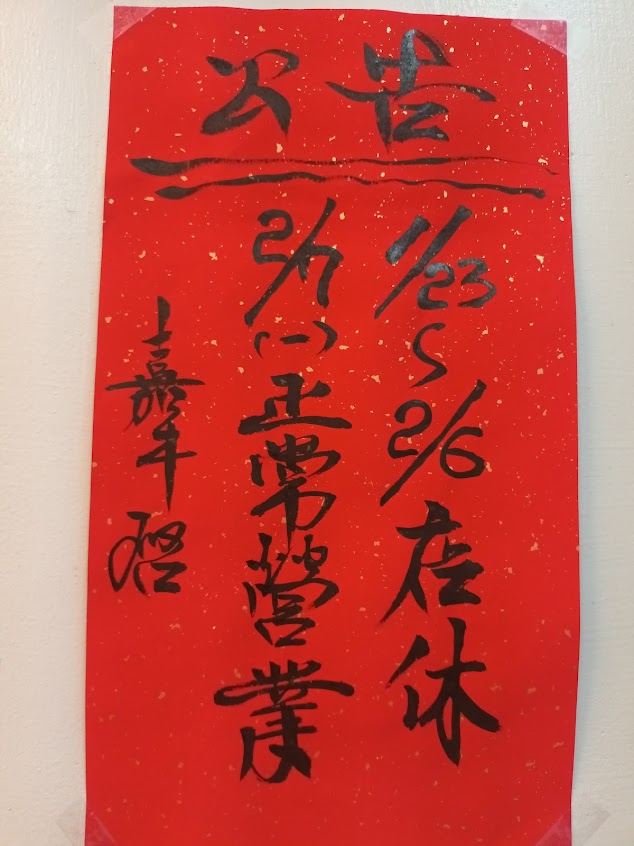 公告
1/23
~
2/6
店休
2/7
(一)
正常營業
嘉年 啓